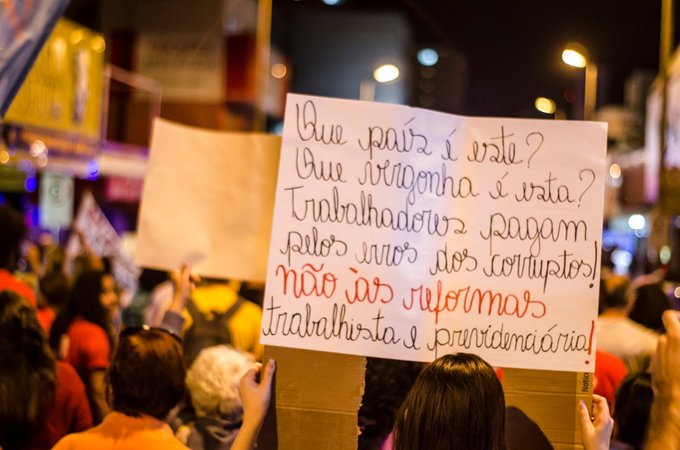 Que país é este?
Que vergonha é esta?
Trabalhadores pagam
pelos erros dos corruptos!
não às reformas
trabalhista e previdenciária!